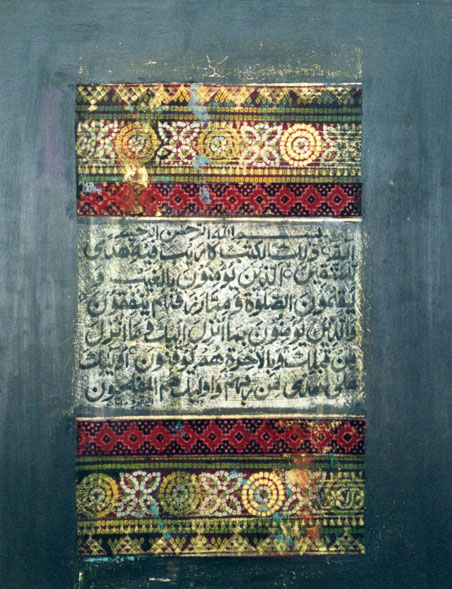 بسم الله الرحمن الرحيم
الم ذلك الكتب لا ريب فيه هدى
للمتقين الذين يؤمنون بالغيب و
يقيمون الصلوة و مما رزقنهم ينفقون
والذين يؤمنون بما انزل اليك وما انزل
من قبلك و بالاخرة هم يوقنون اوليك
على هدى من ربهم واوليك هم المفلحون